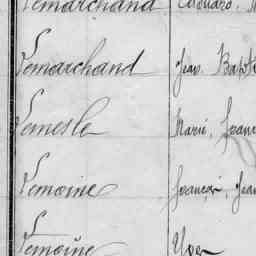 Lemarchand Edouard
Lemarchand Jean Bapt
Lemesle Marie, Franc
Lemoine François, Jean
Lemoine Yves